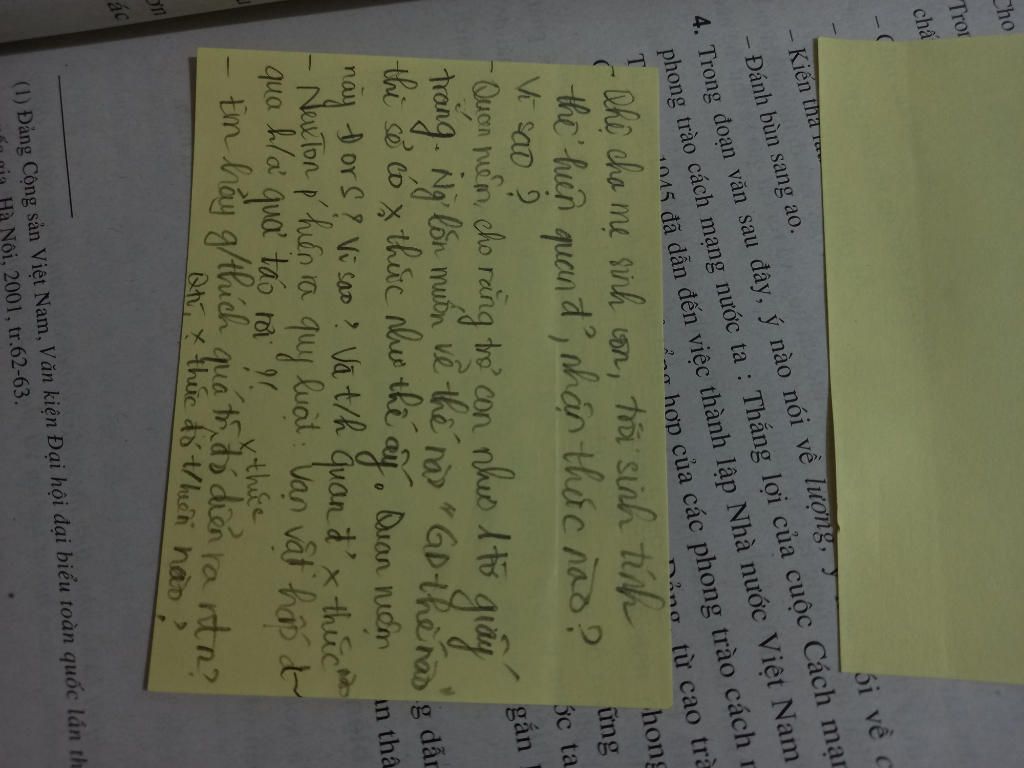 Cho
Tron
chấ
– Kiến thứ
– Đánh bùn sang ao.
4. Trong đoạn văn sau đây, ý nào nói về lượng, ý
ói về c
phong trào cách mạng nước ta : Thắng lợi của cuộc Cách mạn
1945 đã dẫn đến việc thành lập Nhà nước Việt Nam
hợp của các phong trào cách m
Đảng từ cao trà
phong
ững
ớc ta
gắn
g dẫn
n thâ
- Nhờ cha mẹ sinh con, trời sinh tính
thể hiện quan đ', nhận thức nào?
Vì sao?
- Quan niệm cho rằng trẻ con như 1 tờ giấy
trắng. Ng lớn muốn vẽ thế nào "GD thế nào"
thì sẽ có x, thức như thế ấy. Quan niệm
này Đ or S? Vì sao? Và t/h quan đ' x, thức nào
- Newton p' hiện ra quy luật: Vạn vật hấp d~
qua h/a quả táo rơi?!
x, thức
- Em hãy g/thích quá tr đó diễn ra ntn?
x, thức đó t/hiện nào?
(1) Đảng Cộng sản Việt Nam, Văn kiện Đại hội đại biểu toàn quốc lần th
gia, Hà Nội, 2001, tr.62-63.
ác